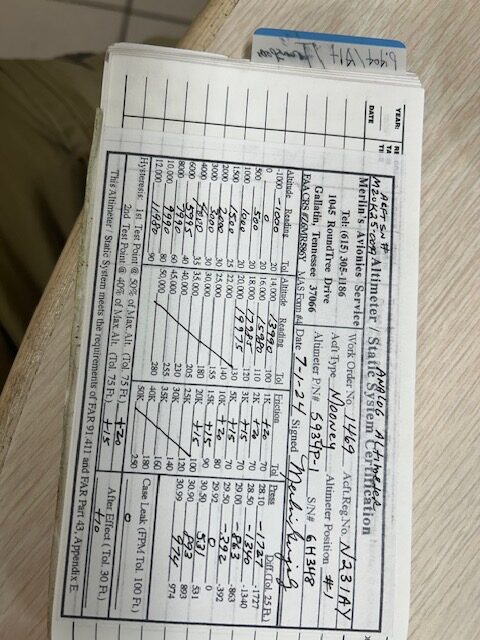 YEAR:
DATE
ACFT S# ANALOG Altimeter
M20K25-0099 Altimeter / Static System Certification
Merlin's Avionics Service Work Order No. 1469 Acft.Reg.No. N231AY
Tel: (615) 305-1186 Acft Type Mooney Altimeter Position #1
1045 RoundTree Drive Altimeter P/N# 5934P-1 S/N# 6H348
Gallatin, Tennessee 37066 Date 7-1-24 Signed
MAS Form #4
Altitude Reading Tol Altitude Reading Tol Friction Tol Press Diff.(Tol. 25 Ft.)
-1000 -1000 20 14,000 13990 100 1K +20 70 28.10 -1727 -1727
0 0 20 16,000 15980 110 2K +20 70 28.50 -1340 -1340
500 500 20 18,000 17985 120 3K +15 70 29.00 -863 -863
1000 1000 20 20,000 19975 130 5K +15 70 29.50 -392 -392
1500 1500 25 22,000 140 10K +20 80 29.92 0 0
2000 2000 30 25,000 155 15K +15 90 30.50 531 531
3000 3000 30 30,000 180 20K +15 100 30.90 893 893
4000 4000 35 35,000 205 25K 120 30.99 974 974
6000 5995 40 40,000 230 30K 140
8000 7990 60 45,000 255 35K 160 Case Leak (FPM Tol. 100 Ft.)
10,000 9990 80 50,000 280 40K 180 0
12,000 11980 90 50K 250
Hysteresis: 1st Test Point @ 50% of Max. Alt. (Tol. 75 Ft.) +20 After Effect ( Tol. 30 Ft.)
2nd Test Point @ 40% of Max. Alt. (Tol. 75 Ft.) +15 +10
This Altimeter / Static System meets the requirements of FAR 91.411 and FAR Part 43, Appendix E.